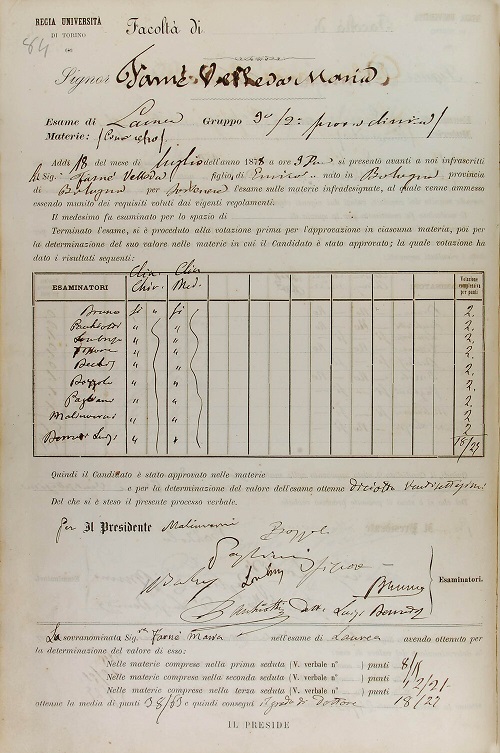 84
REGIA UNIVERSITÀ
DI TORINO
Facoltà di
Signor Farnè Velleda Maria
Esame di Laurea Gruppo 3o/2a prova clinica)
Materie:
Addì 18 del mese di luglio dell'anno 1878 a ore 3 si presentò avanti a noi infrascritti
il Sig. Farnè Velleda figlio di Enrico nato in Bologna provincia
di Bologna per sostenere l'esame sulle materie infradesignate, al quale venne ammesso
essendo munito dei requisiti voluti dai vigenti regolamenti.
Il medesimo fu esaminato per lo spazio di
Terminato l'esame, si è proceduto alla votazione prima per l'approvazione in ciascuna materia, poi per
la determinazione del suo valore nelle materie in cui il Candidato è stato approvato; la quale votazione ha
dato i risultati seguenti:
ESAMINATORI Clin. Chir. Clin. Med. Votazione complessiva per punti
Bruno si " si 2
" " 2
Lombroso " " 2
" " 2
" " 2
Bozzolo " " 2
Pagliani " " 2
Malinverni " " 2
Luigi " " 2
18/27
Quindi il Candidato è stato approvato nelle materie
e per la determinazione del valore dell'esame ottenne diciotto ventisettesimi
Del che si è steso il presente processo verbale.
Per Il Presidente Malinverni
Bozzolo
Pagliani
Lombroso
Bruno
Luigi
Esaminatori.
La sovranominata Sig.ra Farnè Maria nell'esame di Laurea avendo ottenuto per
la determinazione del valore di esso:
Nelle materie comprese nella prima seduta (V. verbale n° ) punti 8/15
Nelle materie comprese nella seconda seduta (V. verbale n° ) punti 12/21
Nelle materie comprese nella terza seduta (V. verbale n° ) punti 18/27
ottenne la media di punti 38/63 e quindi conseguì il grado di dottore
IL PRESIDE